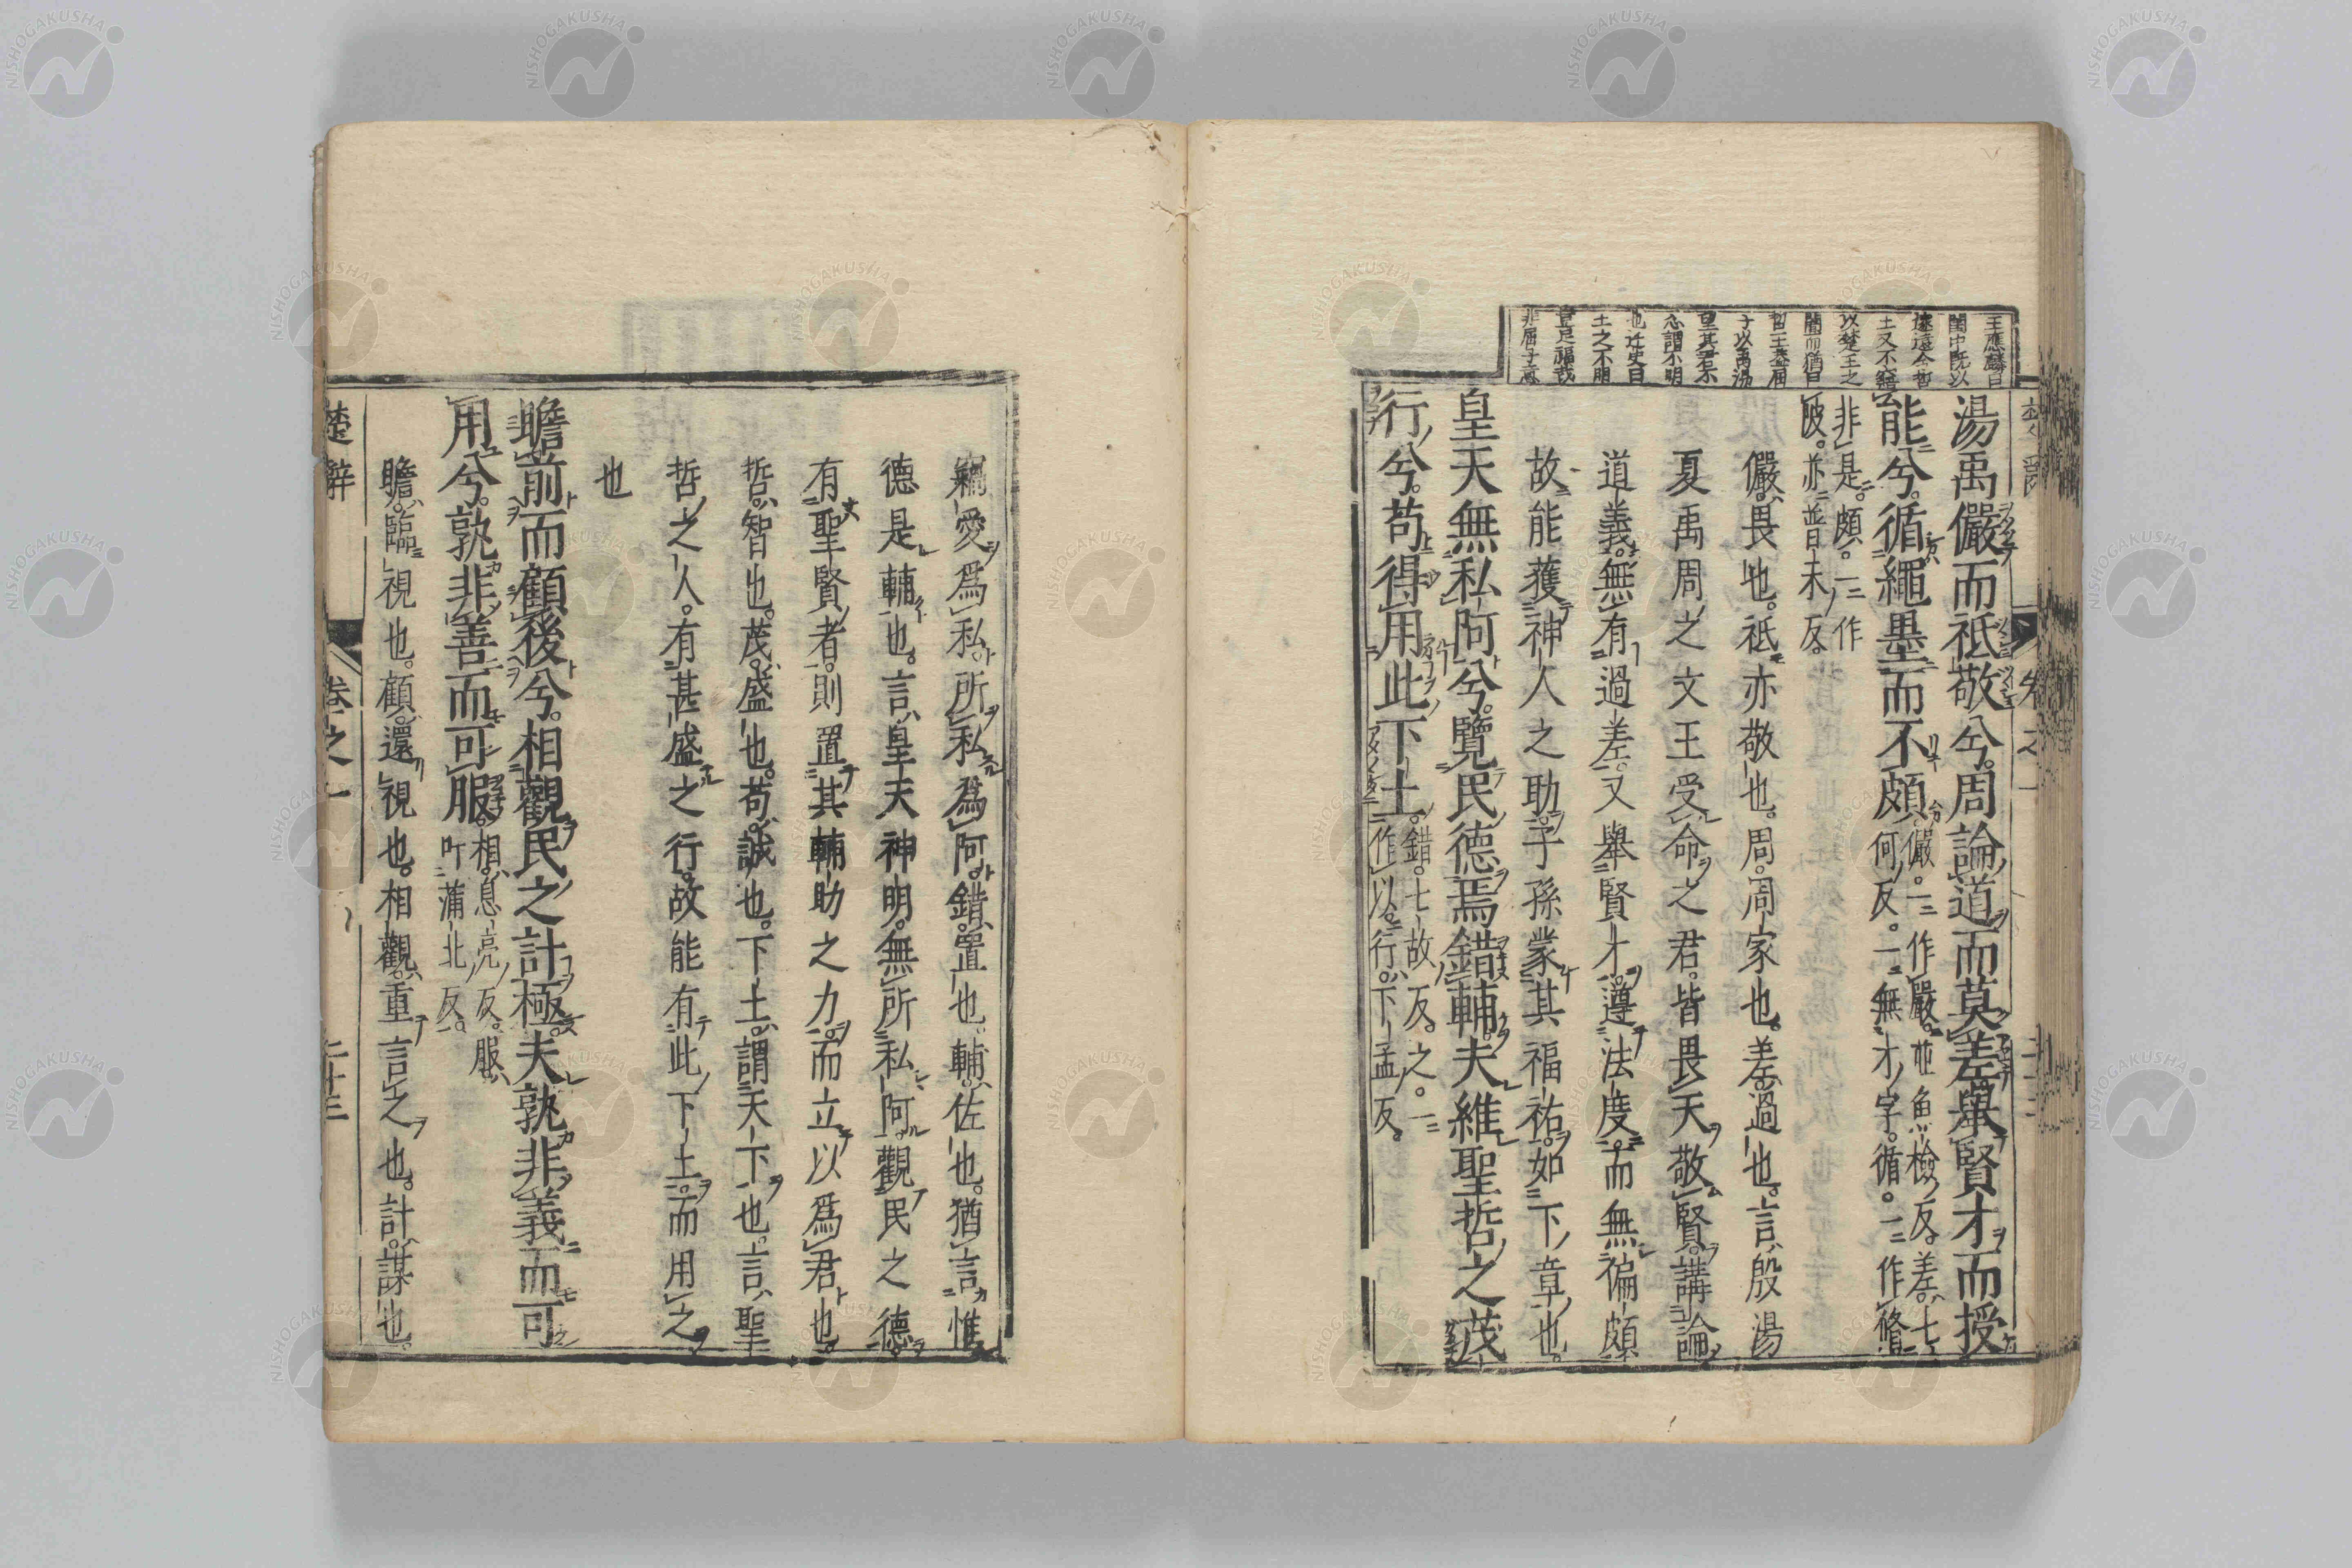 王應麟曰
閨中既以
邃遠兮哲
王又不寤
以楚王之
闇而猶曰
哲王蓋屈
子以禹湯
望其君不
忍謂不明
也太史曰
王之不明
豈足福哉
非屈子意
湯禹儼而祗敬兮。周論道而莫差。舉賢才而授
能兮。循繩墨而不頗。儼。一作嚴。並魚檢反。差。七
何反。一無才字。循。一作脩
非是。頗。一作
陂。亦普禾反。
儼。畏也。祗亦敬也。周。周家也。差。過也。言殷湯
夏禹周之文王受命之君。皆畏天敬賢。講論
道義。無有過差。又舉賢才。遵法度。而無偏頗
故能獲神人之助。子孫蒙其福祐。如下章也。
皇天無私阿兮。覽民德焉錯輔。夫維聖哲之茂
行兮。苟得用此下土。錯。七故反。之。一
作以。行。下孟反。
竊愛爲私。所私爲阿。錯。置也。輔。佐也。猶言惟
德是輔也。言皇天神明。無所私阿。觀民之德
有聖賢者。則置其輔助之力。而立以爲君也。
哲。智也。茂。盛也。苟。誠也。下土。謂天下也。言聖
哲之人。有甚盛之行。故能有此下土。而用之
也
瞻前而顧後兮。相觀民之計極。夫孰非義而可
用兮。孰非善而可服。相。息亮反。服。
叶蒲北反。
瞻。臨視也。顧。還視也。相觀。重言之也。計。謀也。
楚辭
卷之一
二十三
NISHOGAKUSHA